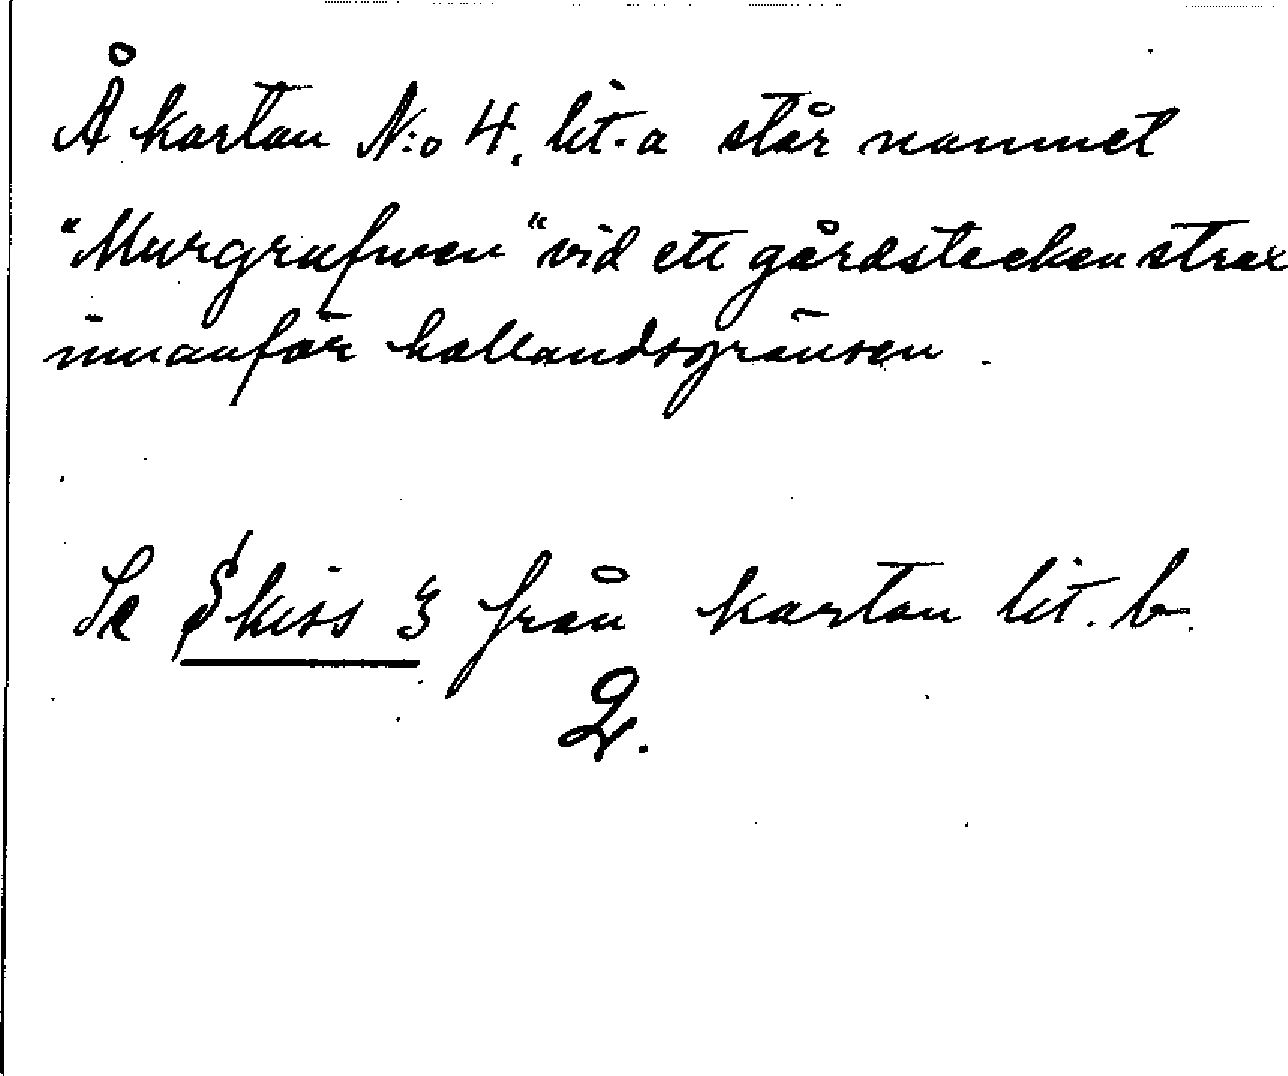 Å kartan N:o 4, lit. a står namnet
"Murgrafwen" vid ett gårdstecken strax
innanför hallandsgränsen.
Se Skiss 3 från kartan lit. b.
2.